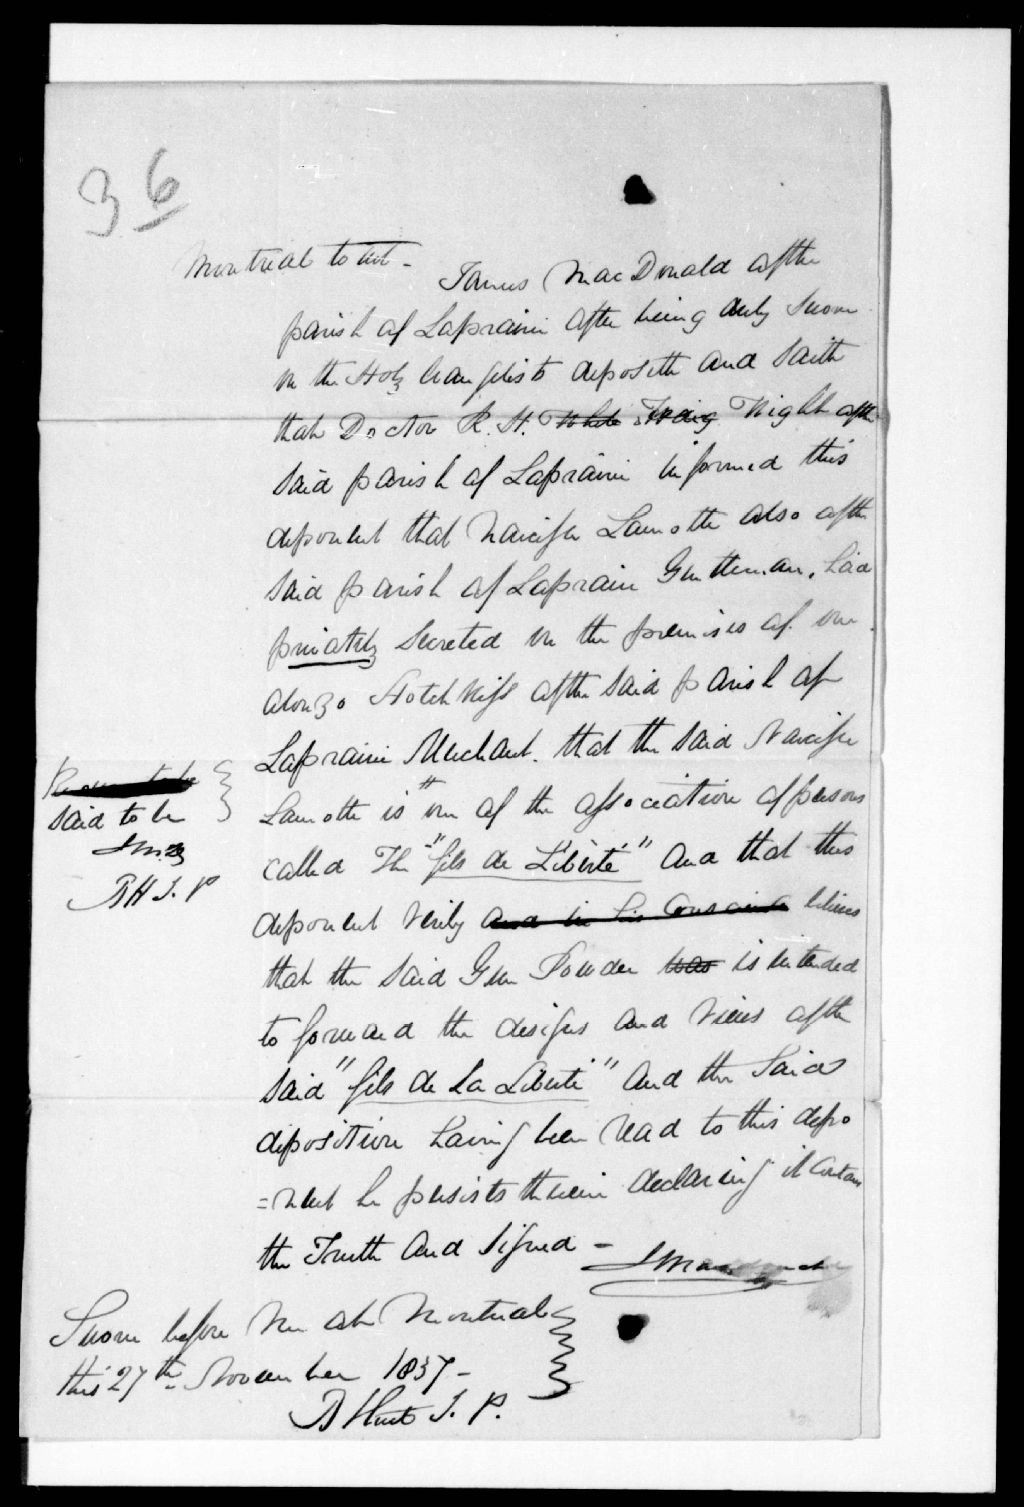 36
Montreal to wit -
James MacDonald of the
parish of Laprairie after being duly Sworn
on the Holy Evangelists deposeth and Saith
that Doctor R. H. White Wright of the
said parish of Laprairie informed this
deponent that Narcisse Lamothe also of the
said parish of Laprairie Gentleman, had
privately Secreted on the premises of one
Alonzo Hotchkiss of the said parish of
Laprairie Merchant. that the said Narcisse
Lamothe is " one of the association of persons
said to be
JM
BH J. P
called The "fils de Liberté" And that this
deponent verily and in his Conscience believes
that the said Gun Powder was is intended
to forward the designs and views of the
said "fils de la Liberté" And the Said
deposition having been read to this depo
=nent he persists therein declaring it Contains
the Truth And Signed - J MacDonald
Sworn before Me at Montreal
this 27th November 1837 -
B Hart J. P.